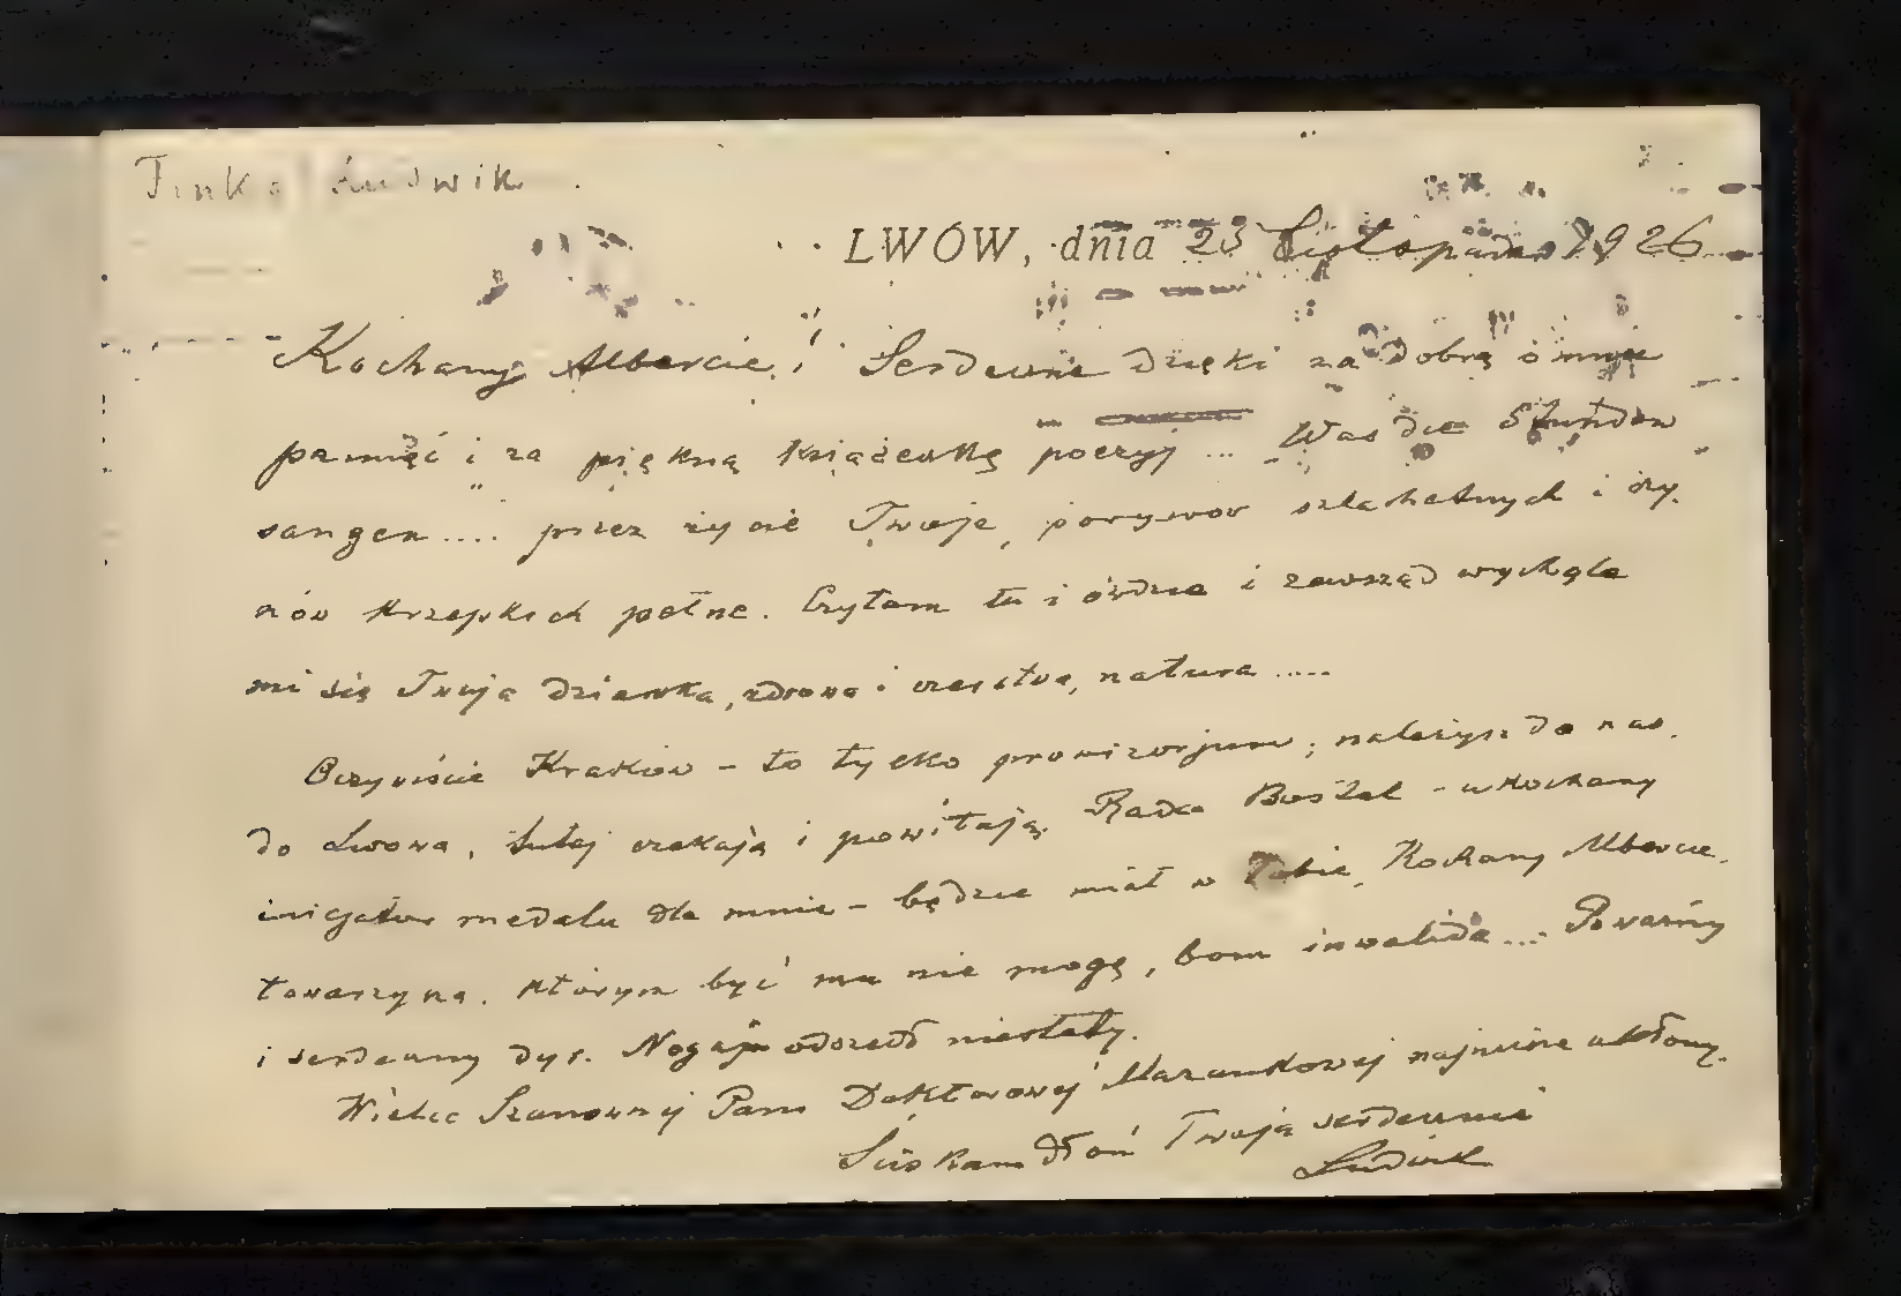 Ludwik
LWÓW, dnia 23 Listopada 1926
Kochany Albercie! Serdeczne dzięki za dobrą o mnie
pamięć i za piękną książeczkę poezyj ... Was die Stunden
sangen .... przez życie Twoje, porywów szlachetnych i czy-
nów krzepkich pełne. Czytam tu i ówdzie i zewsząd wychyla
mi się Twoja dziarska, zdrowa i czerstwa, natura .....
Oczywiście Kraków – to tylko prowizorjum; należysz do nas,
do Lwowa, tutaj czekają i powitają. Radca – ukochany
inicjator medalu dla mnie – będzie miał w Tobie, Kochany Albercie,
towarzysza, którym być mu nie mogę, bom inwalida ... Poważny
i serdeczny dyr. Nogaj odszedł niestety.
Wielce Szanownej Pani Doktorowej najniższe ukłony.
Ściskam dłoń Twoją serdecznie
Ludwik